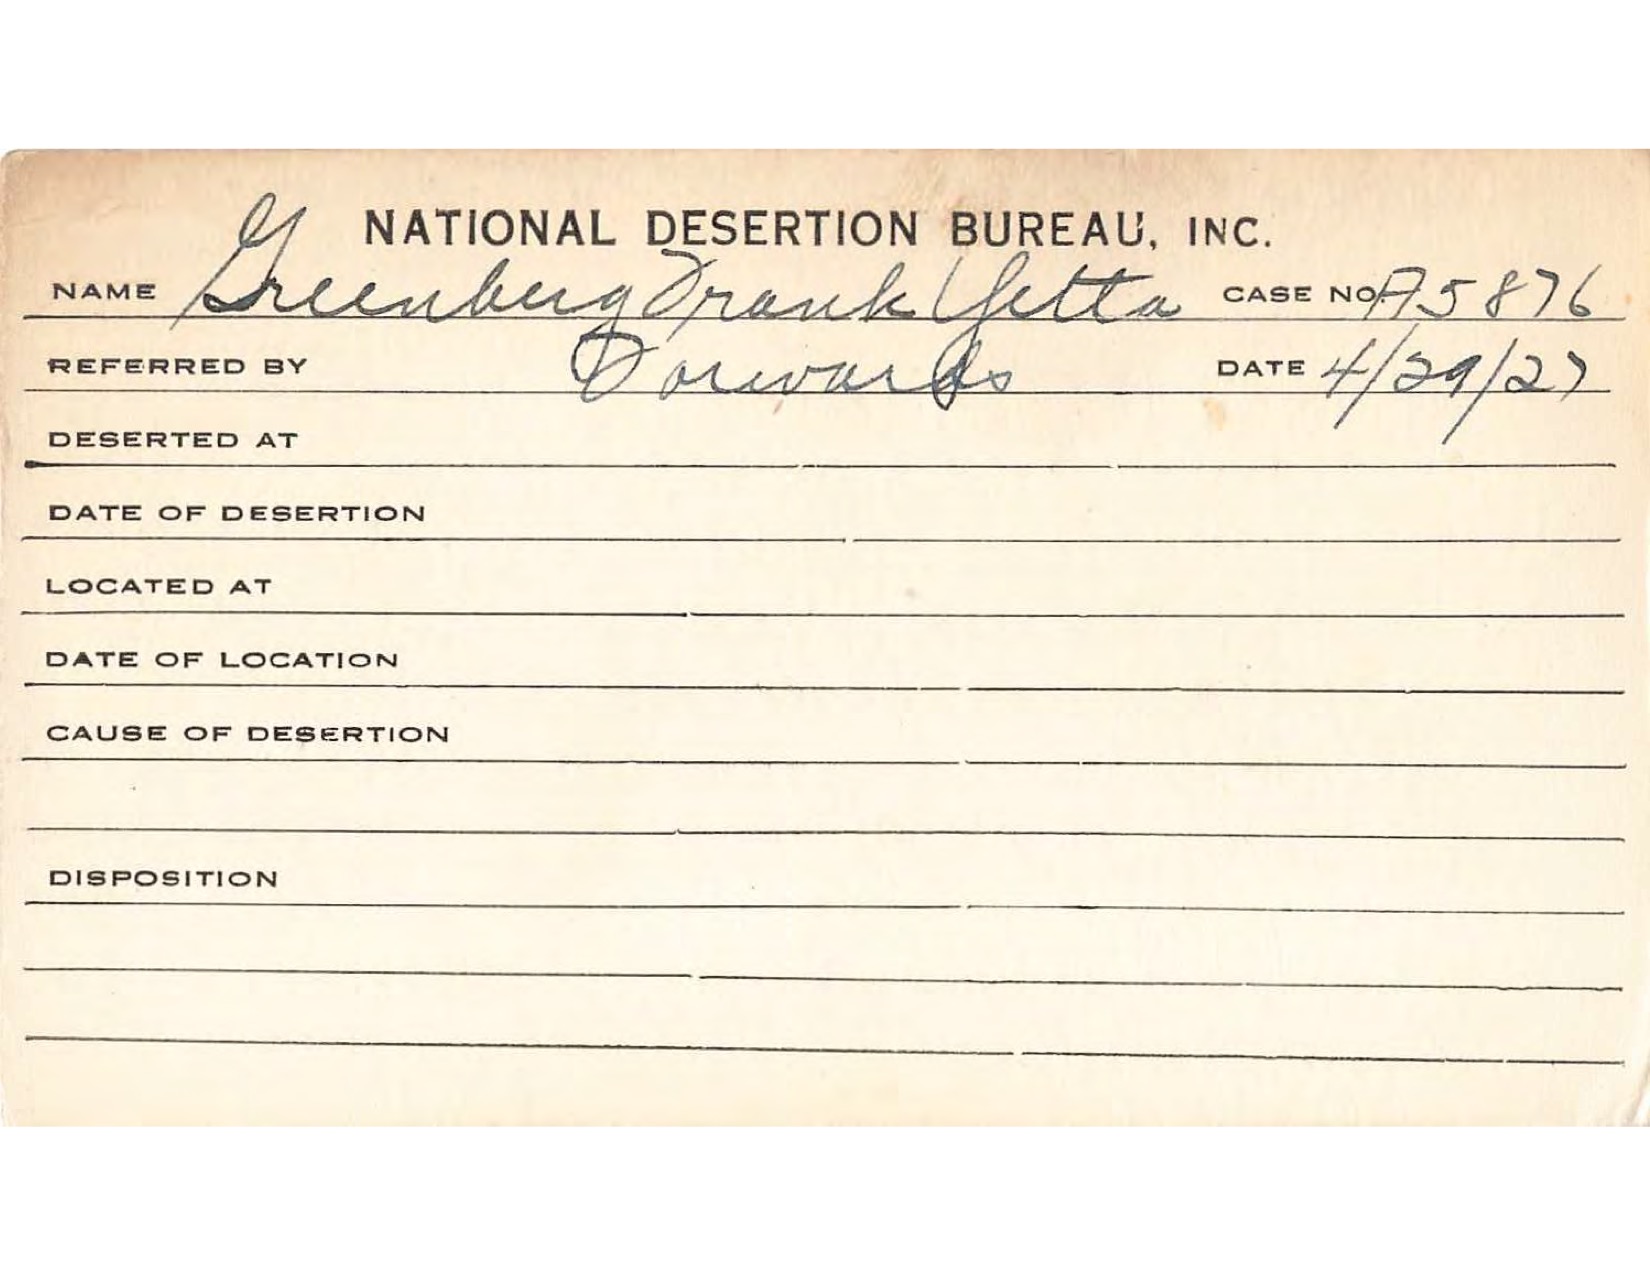 NATIONAL DESERTION BUREAU, INC.
NAME Greenberg Frank Yetta CASE NO. A5876
REFERRED BY Forwards DATE 4/29/27
DESERTED AT
DATE OF DESERTION
LOCATED AT
DATE OF LOCATION
CAUSE OF DESERTION
DISPOSITION